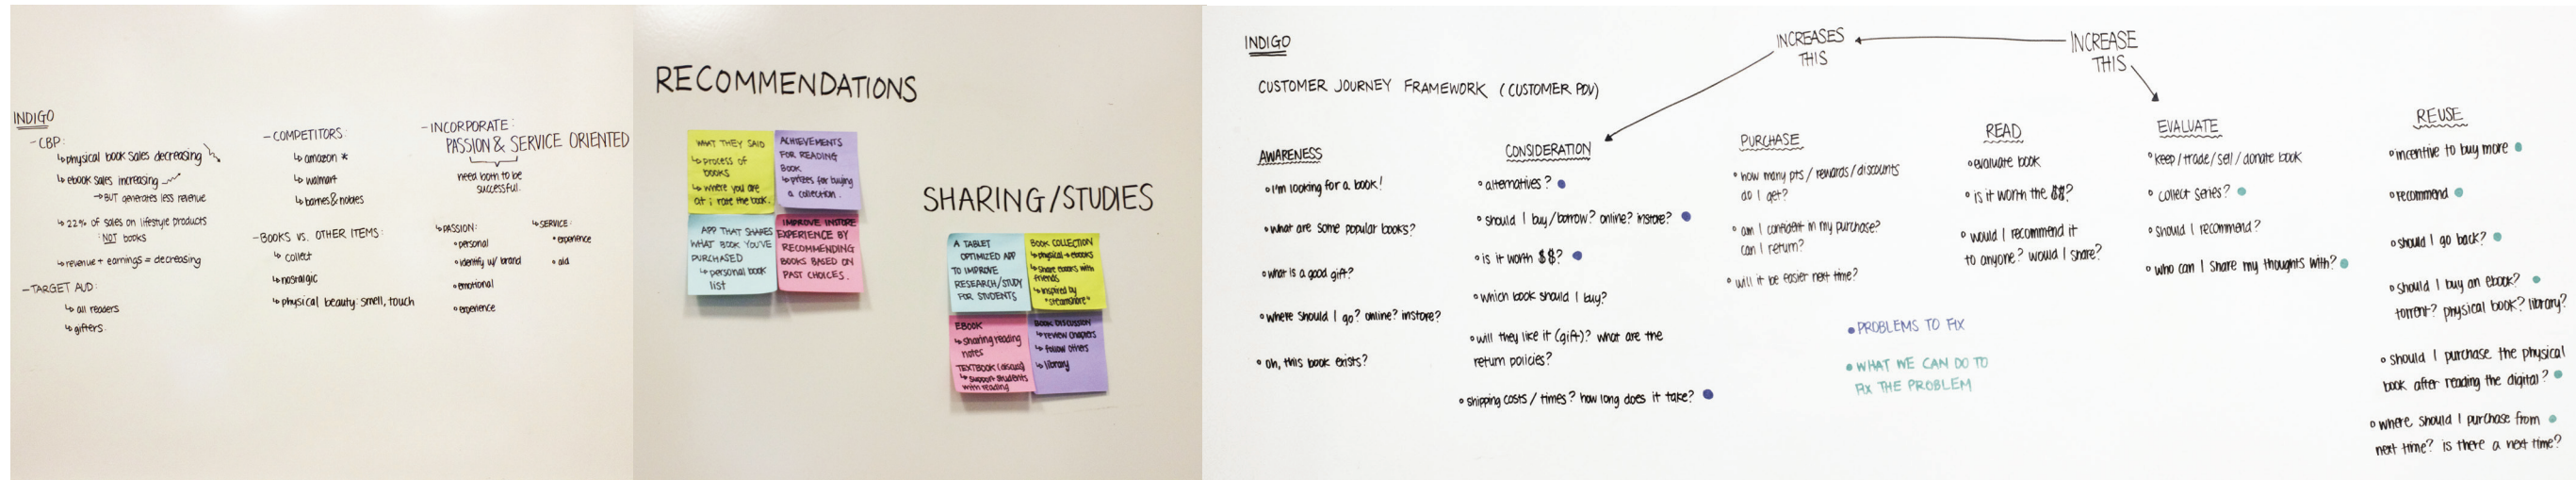 INDIGO
- CBP:
↳ physical book sales decreasing
↳ ebook sales increasing
→ BUT generates less revenue
↳ 22% of sales on lifestyle products
NOT books
↳ revenue + earnings = decreasing
- TARGET AUD:
↳ all readers
↳ gifters
- COMPETITORS:
↳ amazon *
↳ walmart
↳ barnes & nobles
- BOOKS VS. OTHER ITEMS:
↳ collect
↳ nostalgic
↳ physical beauty: smell, touch
- INCORPORATE:
PASSION & SERVICE ORIENTED
need both to be
successful.
↳ PASSION:
• personal
• identify w/ brand
• emotional
• experience
↳ SERVICE:
• experience
• aid
RECOMMENDATIONS
WHAT THEY SAID
↳ process of
books
↳ where you are
at; rate the book.
ACHIEVEMENTS
FOR READING
BOOK
↳ prizes for buying
a collection.
APP THAT SHARES
WHAT BOOK YOU'VE
PURCHASED
↳ personal book
list
IMPROVE INSTORE
EXPERIENCE BY
RECOMMENDING
BOOKS BASED ON
PAST CHOICES.
SHARING/STUDIES
A TABLET
OPTIMIZED APP
TO IMPROVE
RESEARCH/STUDY
FOR STUDENTS
BOOK COLLECTION
↳ physical → ebooks
↳ share ebooks with
friends
↳ inspired by
"steamshare"
EBOOK
↳ sharing reading
notes
TEXTBOOK (discuss)
↳ support students
with reading
BOOK DISCUSSION
↳ review chapters
↳ follow others
↳ library
INDIGO
CUSTOMER JOURNEY FRAMEWORK (CUSTOMER POV)
INCREASES
THIS
INCREASE
THIS
AWARENESS
• I'm looking for a book!
• what are some popular books?
• what is a good gift?
• where should I go? online? instore?
• oh, this book exists?
CONSIDERATION
• alternatives?
• should I buy/borrow? online? instore?
• is it worth $$?
• which book should I buy?
• will they like it (gift)? what are the
return policies?
• shipping costs / times? how long does it take?
PURCHASE
• how many pts / rewards / discounts
do I get?
• am I confident in my purchase?
can I return?
• will it be easier next time?
READ
• evaluate book
• is it worth the $$?
• would I recommend it
to anyone? would I share?
EVALUATE
• keep / trade / sell / donate book
• collect series?
• should I recommend?
• who can I share my thoughts with?
REUSE
• incentive to buy more
• recommend
• should I go back?
• should I buy an ebook?
torrent? physical book? library?
• should I purchase the physical
book after reading the digital?
• where should I purchase from
next time? is there a next time?
• PROBLEMS TO FIX
• WHAT WE CAN DO TO
FIX THE PROBLEM